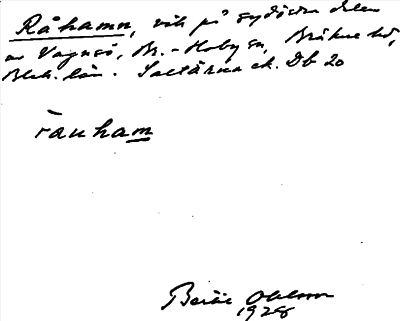 Råhamn, vik på sydöstra delen
av Vagnsö, Br.-Hoby sn, Bräkne hd,
Blek. län. Saltärna ek. Db 20
rauham
Bertil Ohlsson
1928